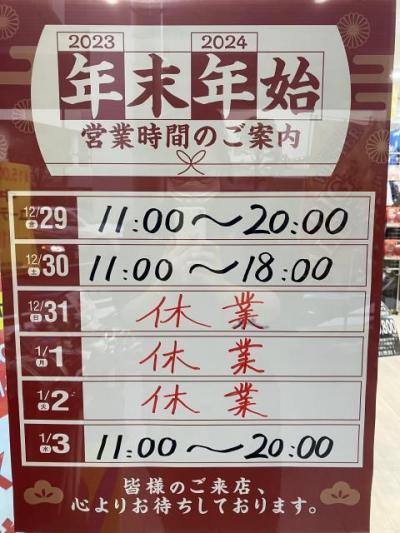 2023 2024
年末年始
営業時間のご案内
12/29 金 11:00〜20:00
12/30 土 11:00〜18:00
12/31 日 休業
1/1 月 休業
1/2 火 休業
1/3 水 11:00〜20:00
皆様のご来店、
心よりお待ちしております。